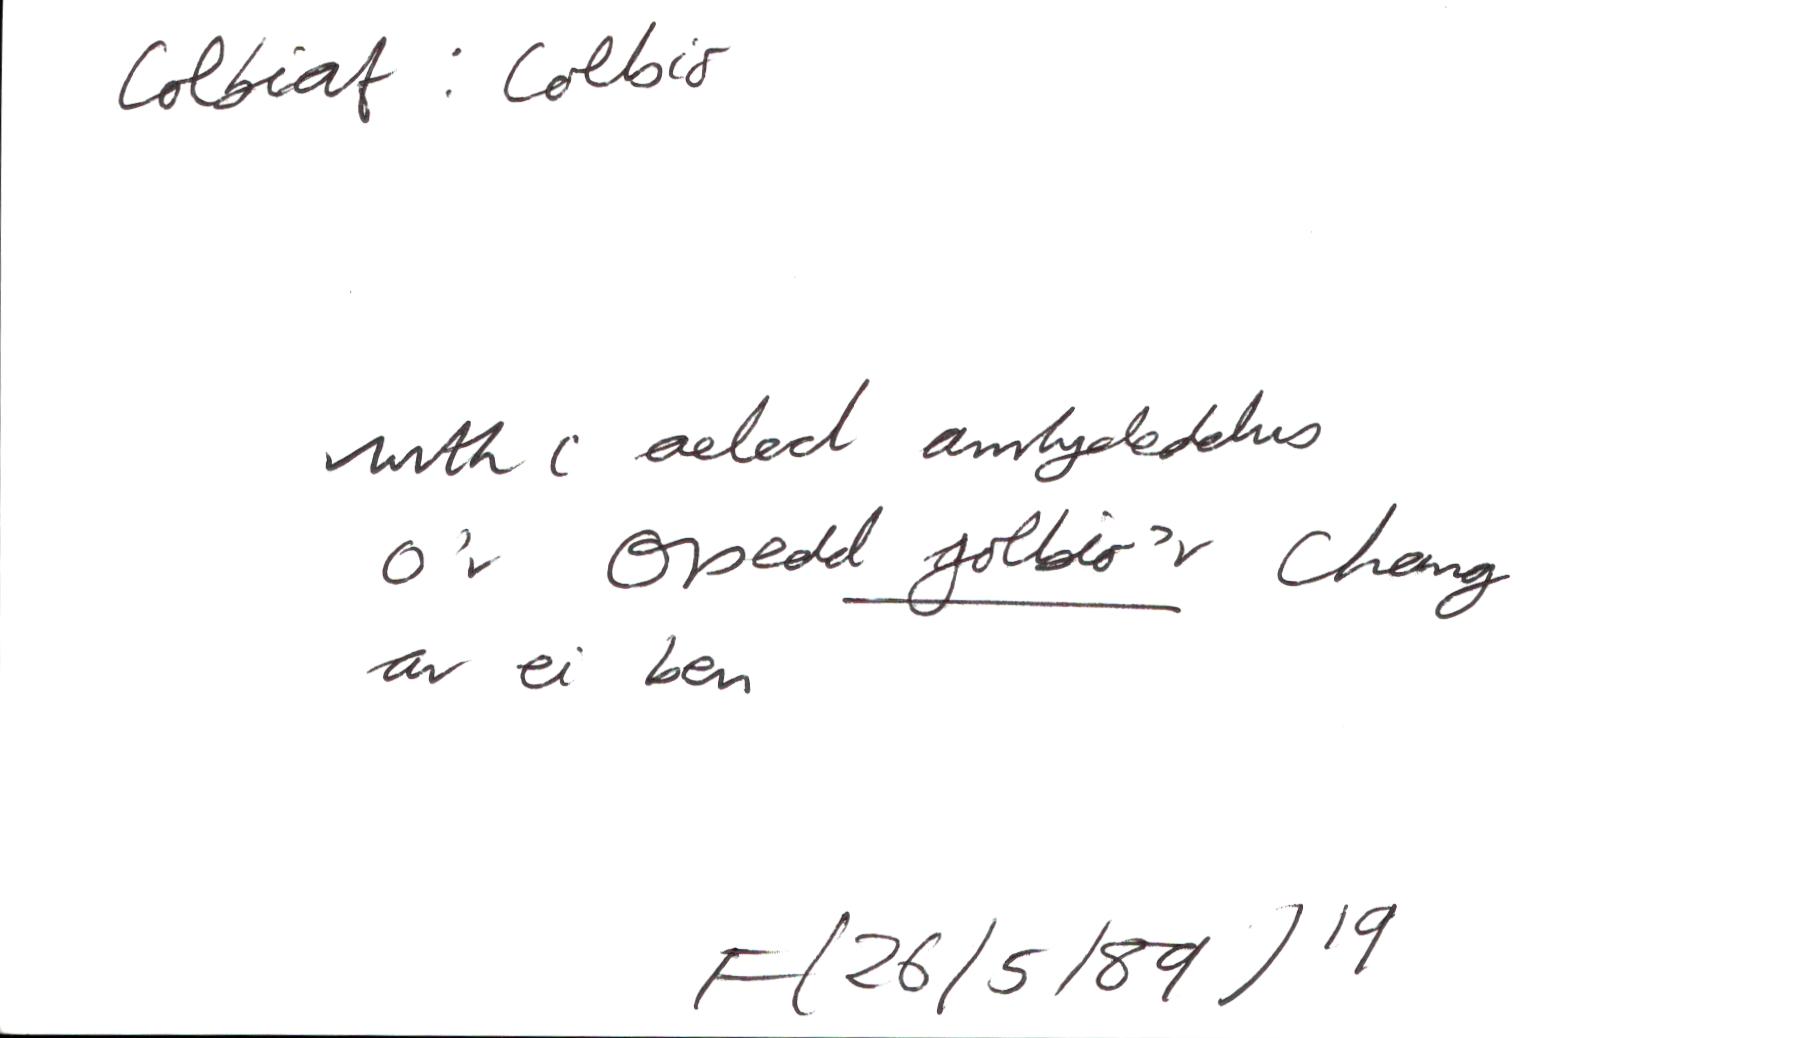 Colbiaf : Colbio
wrth i aelod amlygeddus
o'r Orsedd golbio'r Chang
ar ei ben
F(26/5/89)19